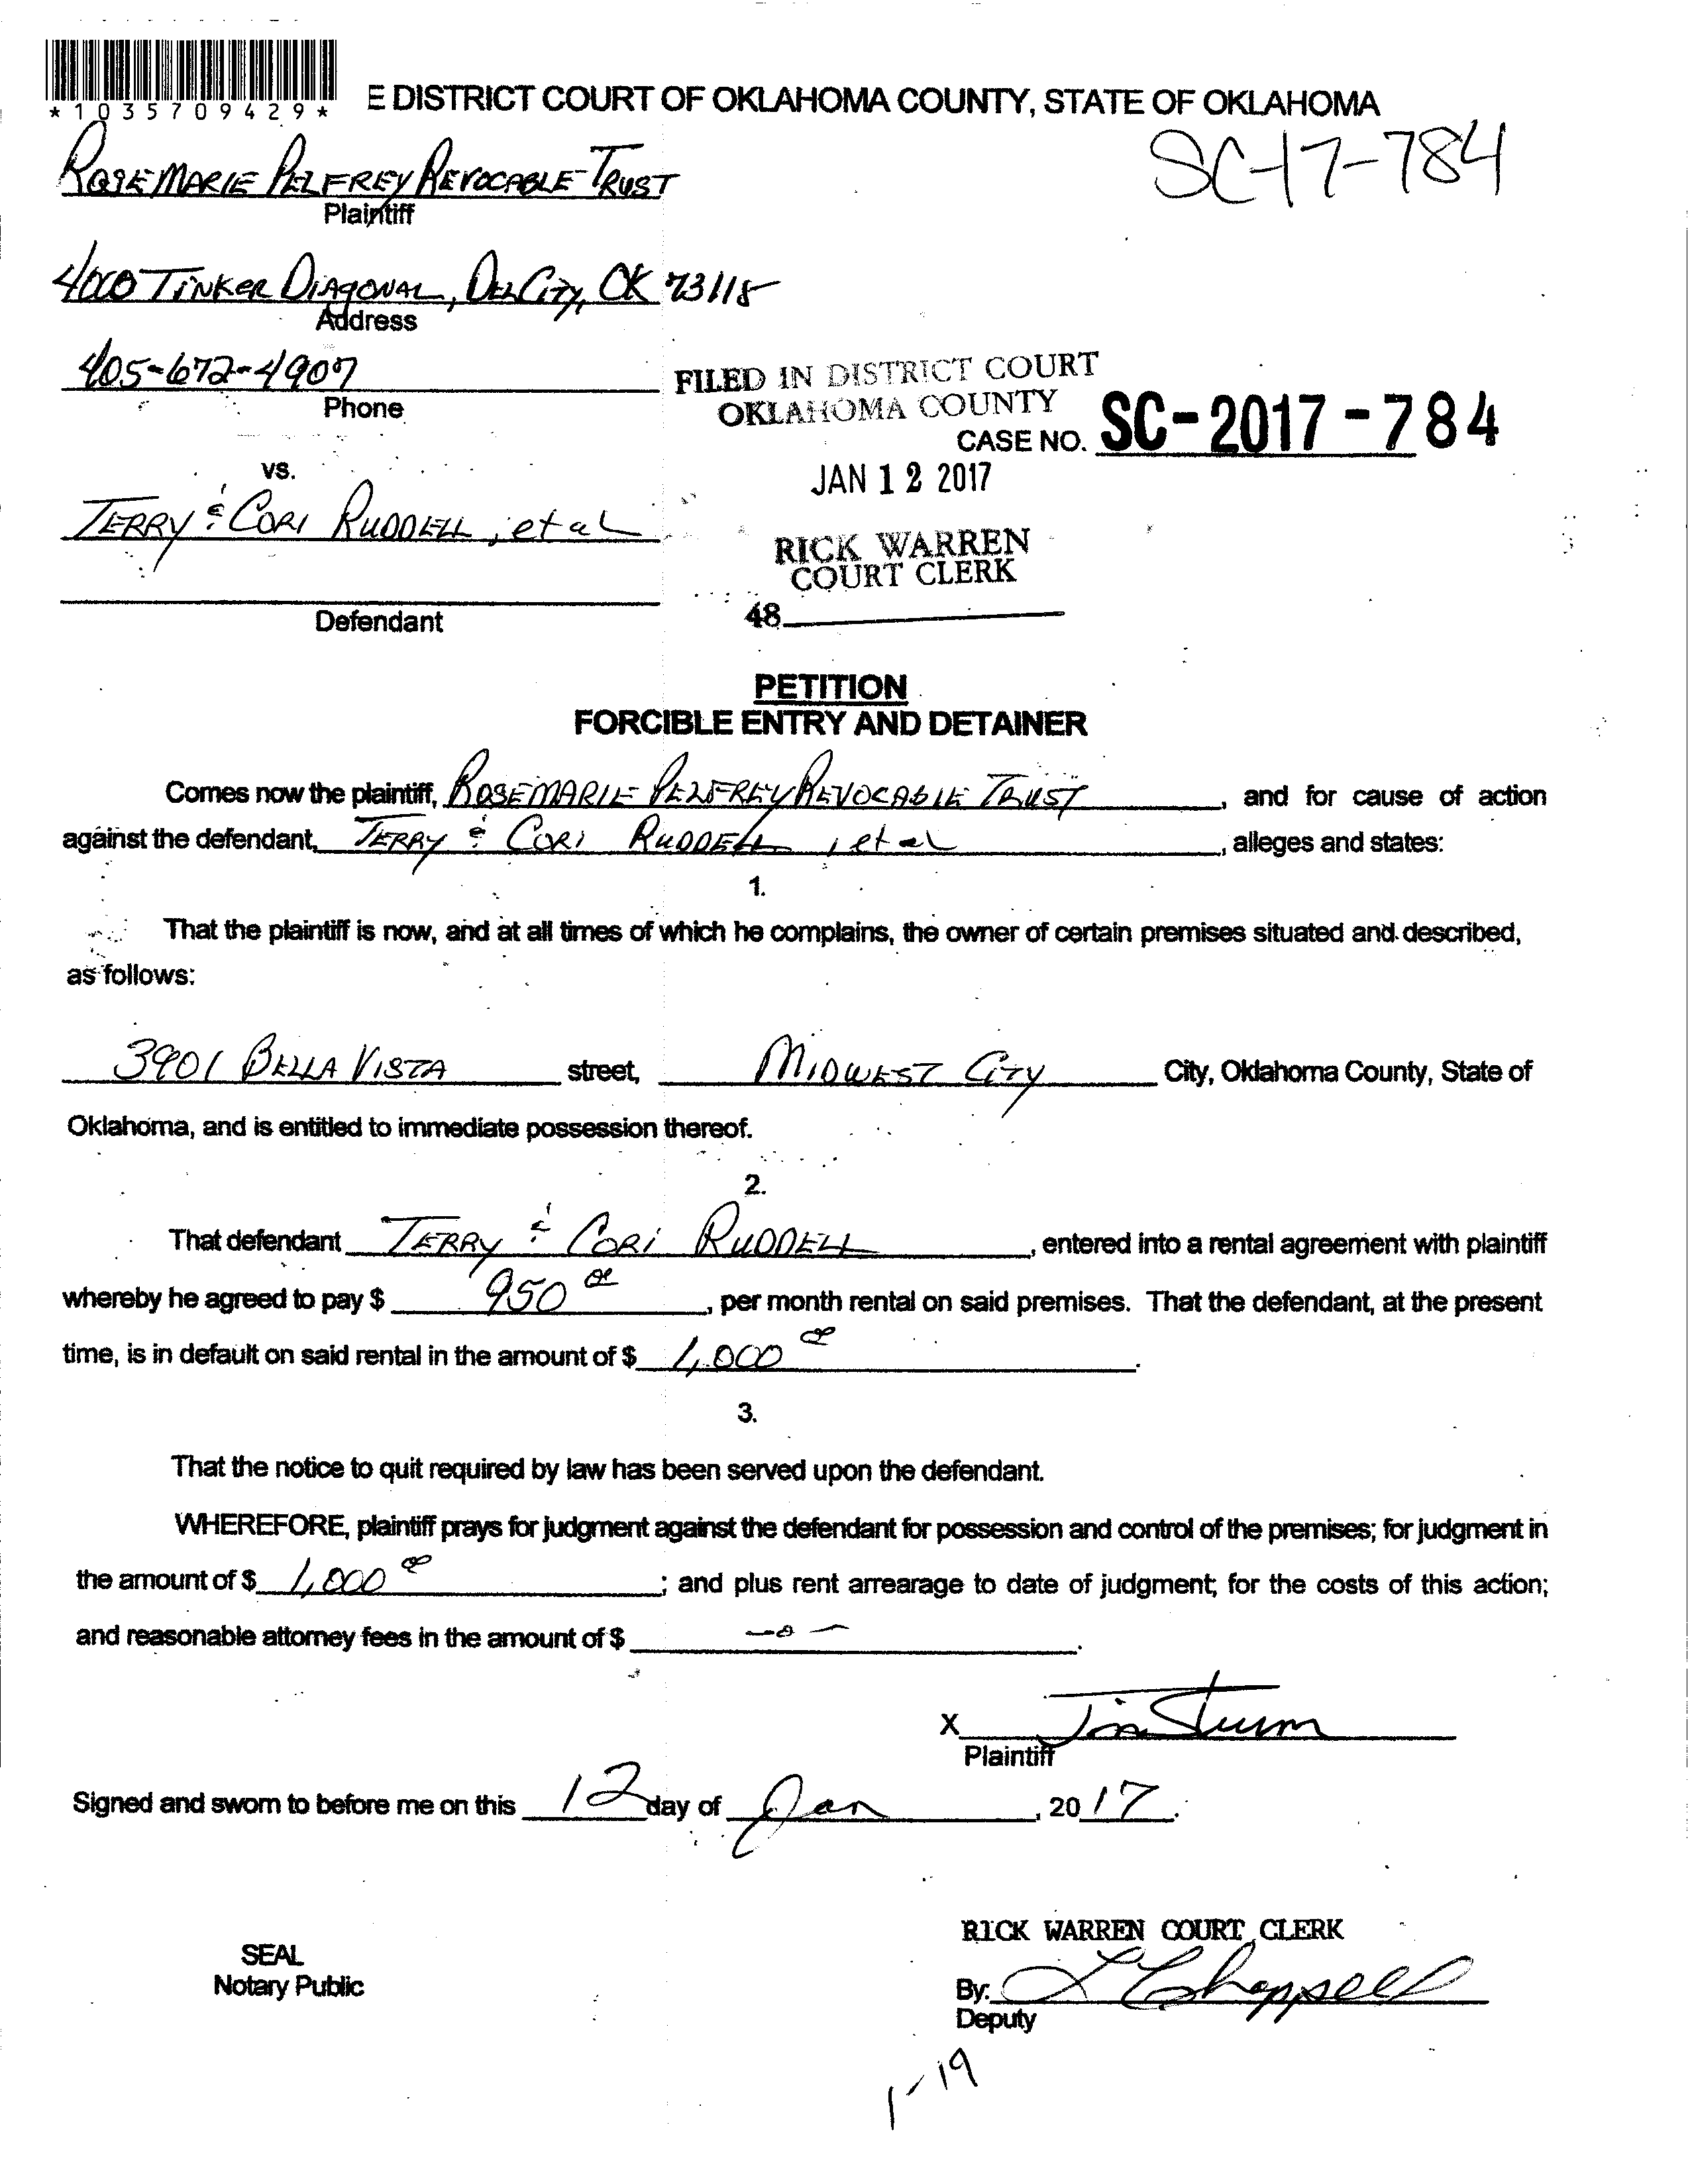 *1035709429*
E DISTRICT COURT OF OKLAHOMA COUNTY, STATE OF OKLAHOMA
SC-17-784
ROSEMARIE PELFREY REVOCABLE TRUST
Plaintiff
4000 TINKER DIAGONAL, DEL CITY, OK 73115
Address
405-672-4907
Phone
FILED IN DISTRICT COURT
OKLAHOMA COUNTY
CASE NO. SC-2017-784
JAN 12 2017
vs.
TERRY & CORI RUDDELL, et al
RICK WARREN
COURT CLERK
48
Defendant
PETITION
FORCIBLE ENTRY AND DETAINER
Comes now the plaintiff, ROSEMARIE PELFREY REVOCABLE TRUST, and for cause of action
against the defendant, TERRY & CORI RUDDELL, et al, alleges and states:
1.
That the plaintiff is now, and at all times of which he complains, the owner of certain premises situated and described,
as follows:
3901 BELLA VISTA street, MIDWEST CITY City, Oklahoma County, State of
Oklahoma, and is entitled to immediate possession thereof.
2.
That defendant TERRY & CORI RUDDELL, entered into a rental agreement with plaintiff
whereby he agreed to pay $ 950 00, per month rental on said premises. That the defendant, at the present
time, is in default on said rental in the amount of $ 1,000 00.
3.
That the notice to quit required by law has been served upon the defendant.
WHEREFORE, plaintiff prays for judgment against the defendant for possession and control of the premises; for judgment in
the amount of $ 1,000 00; and plus rent arrearage to date of judgment; for the costs of this action;
and reasonable attorney fees in the amount of $ -0-.
X Jim Sturm
Plaintiff
Signed and sworn to before me on this 12 day of Jan, 2017.
RICK WARREN COURT CLERK
SEAL
Notary Public
By: L Chappell
Deputy
1-19